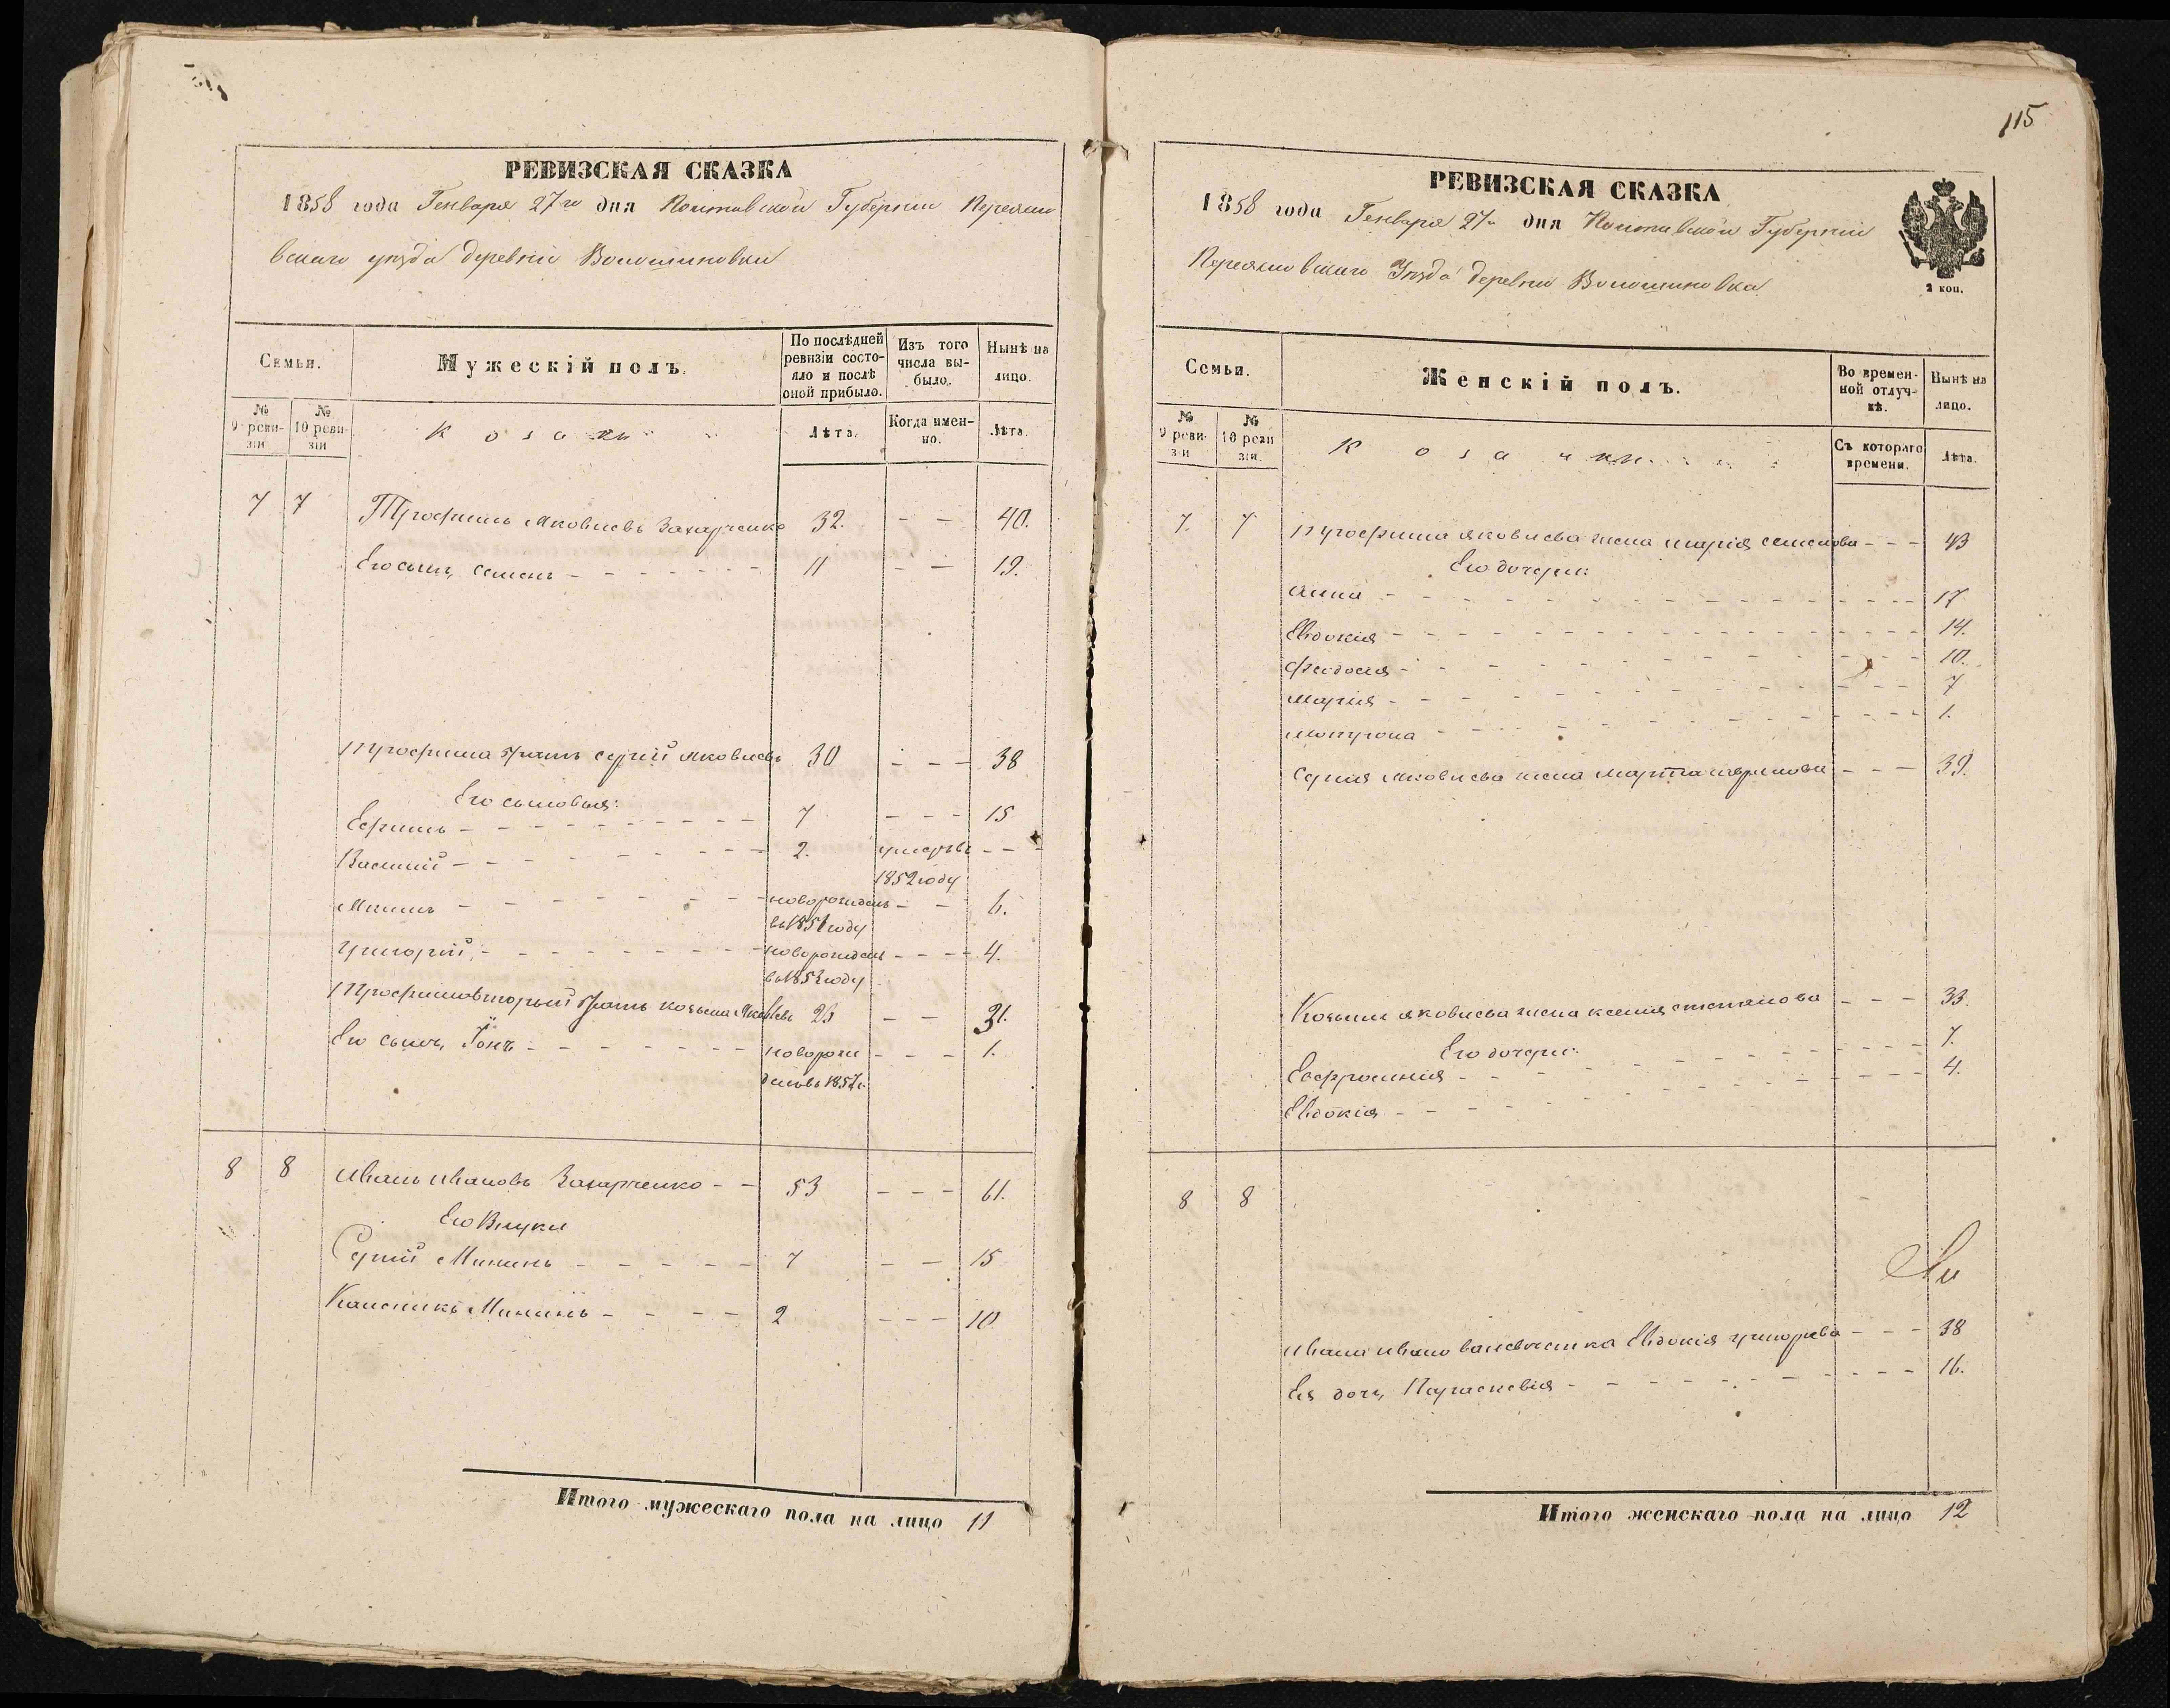 РЕВИЗСКАЯ СКАЗКА
1858 года Генваря 27го дня Полтавской Губерніи Переясло
вскаго уезда деревни Волошиновки
Семьи.
Мужескій полъ.
По послѣдней ревизіи состояло и послѣ оной прибыло.
Изъ того числа выбыло.
Ныне на лицо.
№ 9 ревизіи
№ 10 ревизіи
Козаки
Лѣта.
Когда именно.
Лѣта.
7 7 Трофимъ Яковлевъ Захарченко 32. - - 40.
Его сынъ Семенъ - - - 11 - - 19.
Трофима братъ Сергій Яковлевъ 30 - - - 38
Его сыновья:
Ефимъ - - - 7 - - - 15
Василій - - - 2. умеръ въ - - -
1852 году
- - - новорожденъ - - 6.
въ 1851 году
Григорій - - - новорожденъ - - - 4.
въ 1853 году
Трофима вторый братъ Козьма Яковлевъ 23 - - 31.
Его сынъ Іонъ - - - новорож - - - 1.
денъ въ 1857 г.
8 8 Иванъ Ивановъ Захарченко - - 53 - - - 61.
Его Внуки
Сергій Мининъ - - - 7 - - 15
Калѣникъ Мининъ - - - 2 - - - 10
Итого мужескаго пола на лицо 11
115
РЕВИЗСКАЯ СКАЗКА
1858 года Генваря 27го дня Полтавской Губерніи
Переясловскаго Уезда деревни Волошиновка
2 коп.
Семьи.
Женскій полъ.
Во временной отлучкѣ.
Нынѣ на лицо.
№ 9 ревизіи
№ 10 ревизіи
Козачки
Съ котораго времени.
Лѣта.
7. 7 Трофима Яковлева жена Марія Семенова - - - 43
Его дочери:
Анна - - - 17
Евдокия - - - 14.
Феодосия - - - 10.
Мария - - - 7
Мотрона - - - 1.
Сергия Яковлева жена Марта Гаврилова - - - 39.
Козьми Яковлева жена Ксения Степанова - - - 33.
Его дочери: 7.
Евфросиния - - - 4.
Евдокия - - -
8 8
Ивана Иванова невестка Евдокия Григорьева - - - 38
Ея дочь Параскевия - - - 16.
Итого женскаго пола на лицо 12